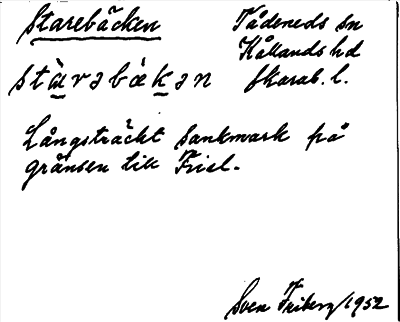 Starebäcken
Tådeneds sn
Kållands hd
Skarab. l.
stàrəbäkən
Långsträckt sankmark på
gränsen till Friel.
Sven Friberg/1952